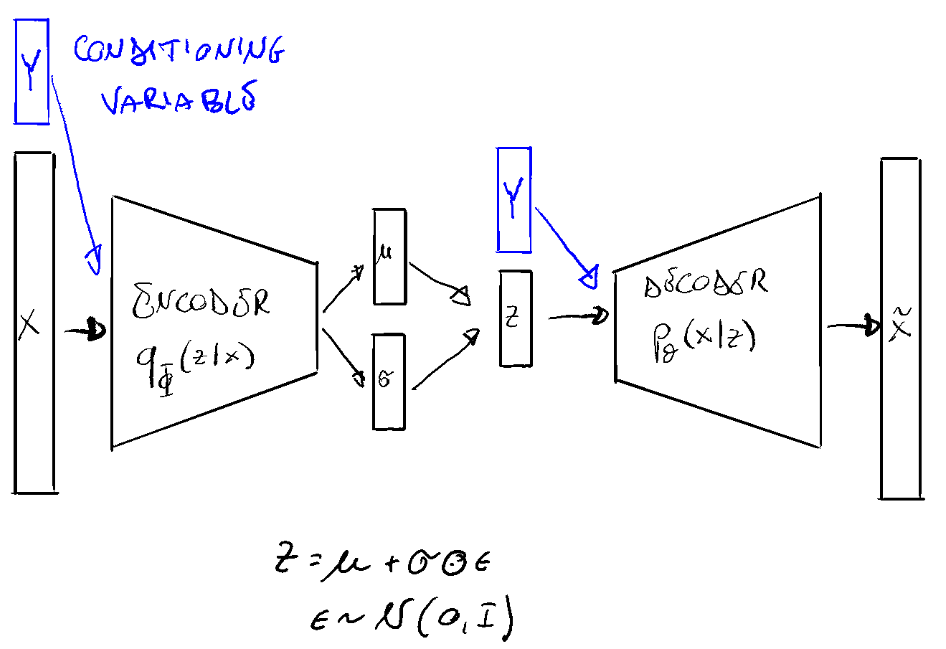 Y
CONDITIONING
VARIABLE
X
ENCODER
q_Φ(z|x)
μ
σ
Y
Z
DECODER
p_θ(x|z)
x̃
Z = μ + σ⊙ε
ε ~ N(0, I)